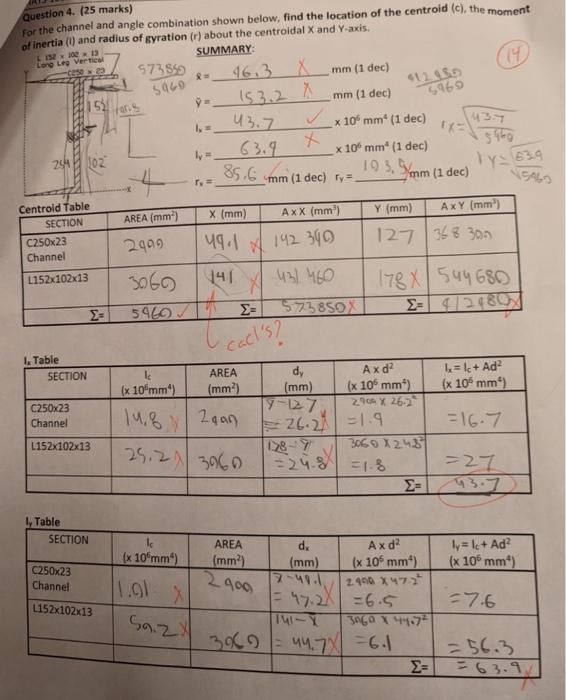 Question 4. (25 marks)
For the channel and angle combination shown below, find the location of the centroid (c), the moment
of inertia (I) and radius of gyration (r) about the centroidal X and Y-axis.
L 152 x 102 x 13
Long Leg Vertical
C250 x 23
SUMMARY:
14
573850
5960
x̄ = 96.3 X mm (1 dec)
912980
5960
ȳ = 153.2 X mm (1 dec)
152
Iₓ = 43.7 ✓ x 10⁶ mm⁴ (1 dec)
rx = √43.7
5960
Iᵧ = 63.9 X x 10⁶ mm⁴ (1 dec)
ry = √63.9
5960
254
102
rₓ = 85.6 mm (1 dec) rᵧ = 103.5 mm (1 dec)
x
Centroid Table
SECTION AREA (mm²) X (mm) A x X (mm³) Y (mm) A x Y (mm³)
C250x23
Channel
2900 49.1 X 142 390 127 368 300
L152x102x13
3060 141 X 431 460 178 X 544 680
Σ= 5960 ✓ Σ= 573850 X Σ= 912980 X
calc's?
Iₓ Table
SECTION Ic (x 10⁶mm⁴) AREA (mm²) dᵧ (mm) A x d² (x 10⁶ mm⁴) Iₓ = Ic + Ad² (x 10⁶ mm⁴)
C250x23
Channel
ȳ-127 2900 x 26.2²
14.8 X 2900 = 26.2 X =1.9 =16.7
L152x102x13
178-ȳ 3060 x 24.8²
25.2 X 3060 =24.8 X =1.8 =27
Σ= 43.7
Iᵧ Table
SECTION Ic (x 10⁶mm⁴) AREA (mm²) dₓ (mm) A x d² (x 10⁶ mm⁴) Iᵧ = Ic + Ad² (x 10⁶ mm⁴)
C250x23
Channel
x̄-49.1 2900 x 47.2²
1.01 X 2900 = 47.2 X =6.5 =7.6
L152x102x13
141-x̄ 3060 x 44.7²
50.2 X 3060 = 44.7 X =6.1 = 56.3
Σ= = 63.9 X